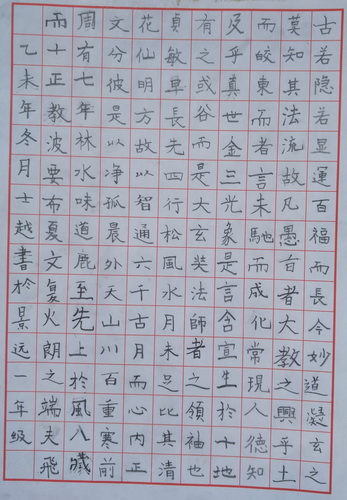 古若隐若显運百福而長今妙道凝玄之
莫知其法流故凡愚百者大教之興乎土
而皎東而者言未馳而成化常現人德知
及乎真世金三光象是言含宜生於十地
有之或谷而是大玄奘法師者之領袖也
真敏早長先四行松風水月未足比其清
花仙明方故以智通六千古月而心内正
文分彼是以净孤晨外天山川百重寒前
周有七年林水味道鹿至先上於風八藏
而十正教波要布夏文复火朗之端夫飛
乙未年冬月士越書於景远一年级